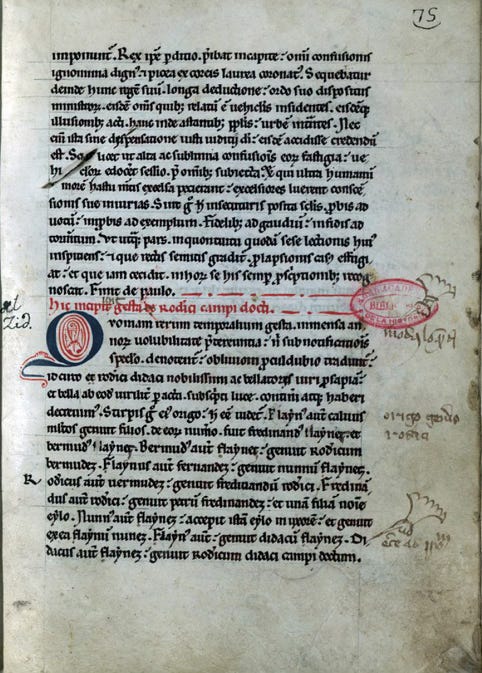 75
imponunt. Rex ipse perditio. p̄ibat incapite: omni confusionis
ignominia dign9: picea ex coreis laurea coronat9. Sequebatur
deinde hunc longa deductione: ordo suo dispositus
ministror. eisdē omib; relatū ē uehiclis insidentes. eisdēq;
illusionib; acti. hanc inde astantib; pplis: urbēm intntes. Nec
cm̄ ista sine dispensatione iusti iuditij di: eisdē accidisse credendū
est. uocet ut alta ac sublimia confusionis eor fastigia: ue
hi elor edocet sessio. p̄ omib; subiecta. X qui ultra humanū
morē hastu mtis excelsa petierant: excelsiores luerent consces
sionis suo iniurias. Sint g̊ h̄ insecuturis posita sclis. probis ad
uotū: improbis ad exemplum. Fidelib; ad gaudiū: infidis ad
tormtum. Vt utraq; pars. in quontuitu quodā sese lectionis hui9
inspitiens: que rectis semitis gradit prolapsionis casū effugi
at: et que iam cecidit. in hor se his semp. psceptionib; recog
noscat. Finit de paulo.
hic incipit gesta de Rodici campi docti.
el
Zid.
Quoniam rerum temporalium gesta. inmensa an
nor uolubilitate p̄tereuntia: n̄ sub notificationis
speclo. denotent: obliuioni proculdubio tradunt:
idcirco et rodici didaci nobilissimi ac bellatoris uiri psapiā:
et bella ab eod uirilit pacta. subscripta luce. contineri atq; haberi
decreuim9. Stirpis g̊ ei9 origo: h̄ ēē uidet. Flayn9 autē caluus
mltos genuit filios. de eor num̄o. fuit fredinand9 flaynez. et
bermud9 flaynez. Bermud9 autē flaynez: genuit Rodicum
bermudez. Flaynus autē fernandez: genuit nunnū flaynez.
Rodicus autē uermudez: genuit fredinandū rodici. Fredinā
dus autē rodici: genuit petrū fredinandez: et unā filiā noīe
eylo. Nunn9 autē flaynez: accepit istā eylo in uxorē: et genuit
ex ea flaynū nunez. Flayn9 autē: genuit didacū flaynez. Di
dacus autē flaynez: genuit Rodicum didaci campi doctum.
origo gen̄is
rodici